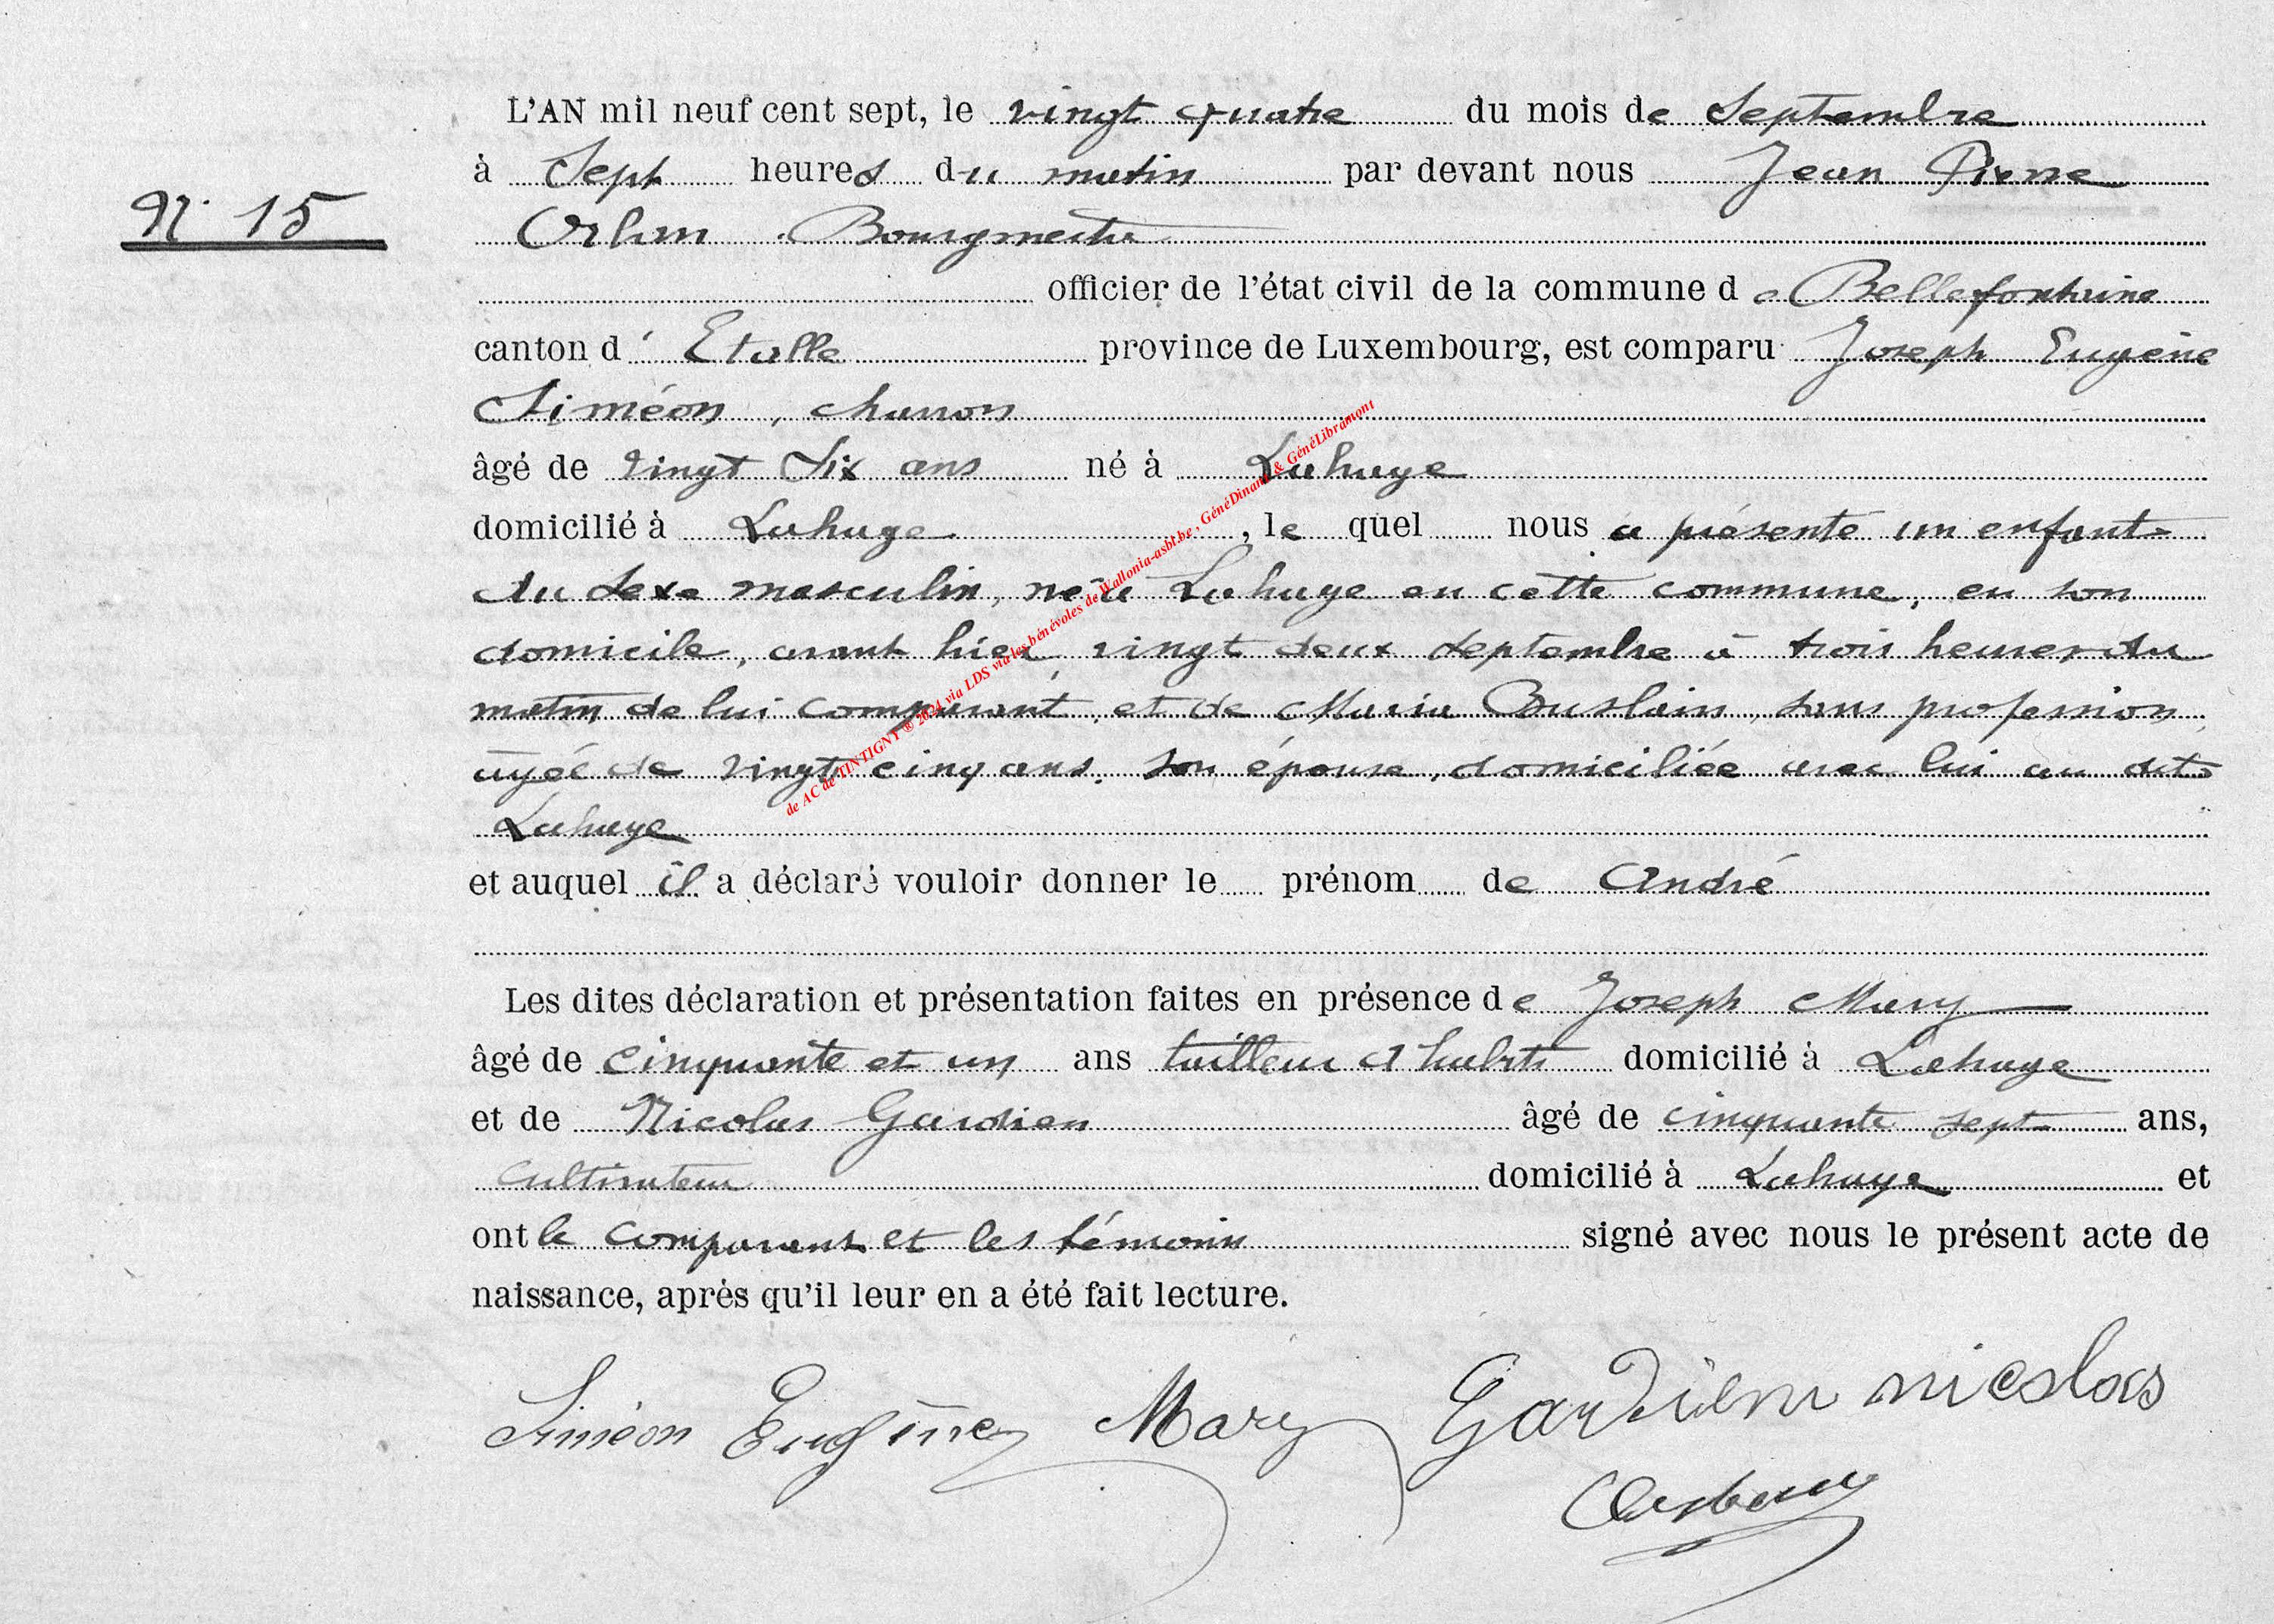 L'AN mil neuf cent sept, le vingt quatre du mois de Septembre
à Sept heures du matin par devant nous Jean Pierre
N° 15
Bourgmestre
officier de l'état civil de la commune de Bellefontaine
canton d'Etalle province de Luxembourg, est comparu Joseph Eugène
Siméon, charron
âgé de vingt six ans né à Lahage
domicilié à Lahage, le quel nous a présenté un enfant
du sexe masculin, né à Lahage en cette commune, en son
domicile, avant hier vingt deux septembre à trois heures du
matin de lui comparant, et de Maria Buslain, sans profession,
âgée de vingt cinq ans, son épouse, domiciliée avec lui au dit
Lahage
et auquel il a déclaré vouloir donner le prénom de André
Les dites déclaration et présentation faites en présence de Joseph Mary
âgé de cinquante et un ans tailleur d'habits domicilié à Lahage
et de Nicolas Gardien âgé de cinquante sept ans,
cultivateur domicilié à Lahage et
ont le comparant et les témoins signé avec nous le présent acte de
naissance, après qu'il leur en a été fait lecture.
Siméon Eugène Mary Gardien nicolas
de AC de TINTIGNY ® 2024 via LDS via les bénévoles de Wallonia-asbl.be, GénéDinant & GénéLibramont